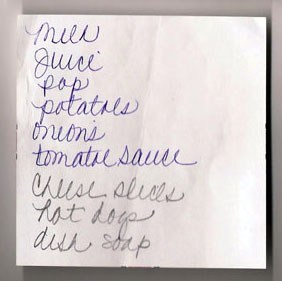 milk
Juice
pop
potatoes
onions
tomatoe sauce
cheese slices
hot dogs
dish soap